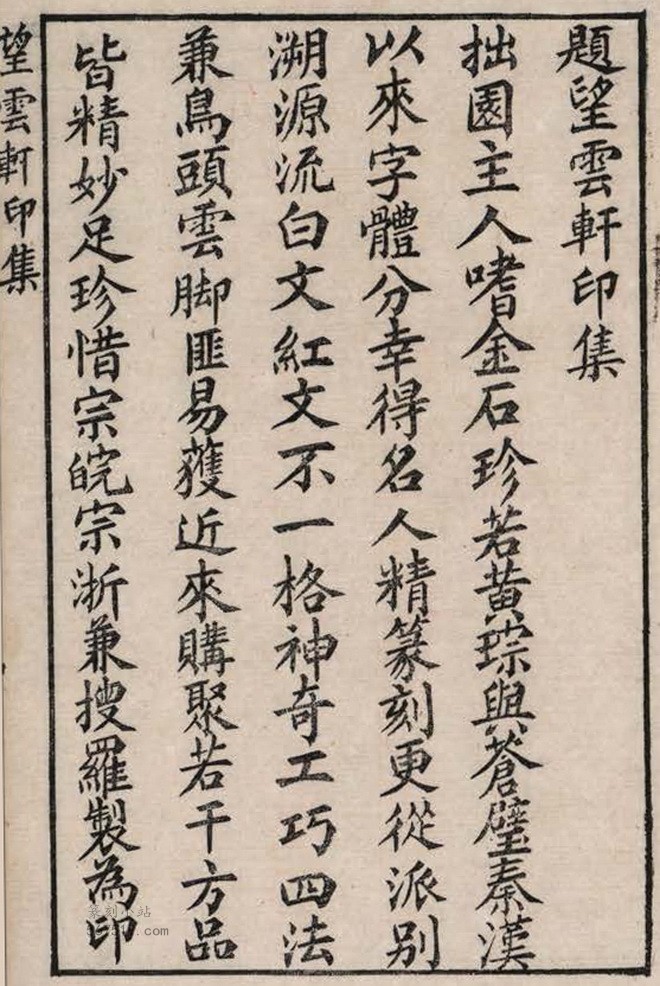 題望雲軒印集
拙園主人嗜金石珍若黃琮與蒼璧秦漢
以來字體分幸得名人精篆刻更從派別
溯源流白文紅文不一格神奇工巧四法
兼鳥頭雲脚匪易獲近來購聚若干方品
皆精妙足珍惜宗皖宗浙兼搜羅製為印
望雲軒印集
篆刻小站